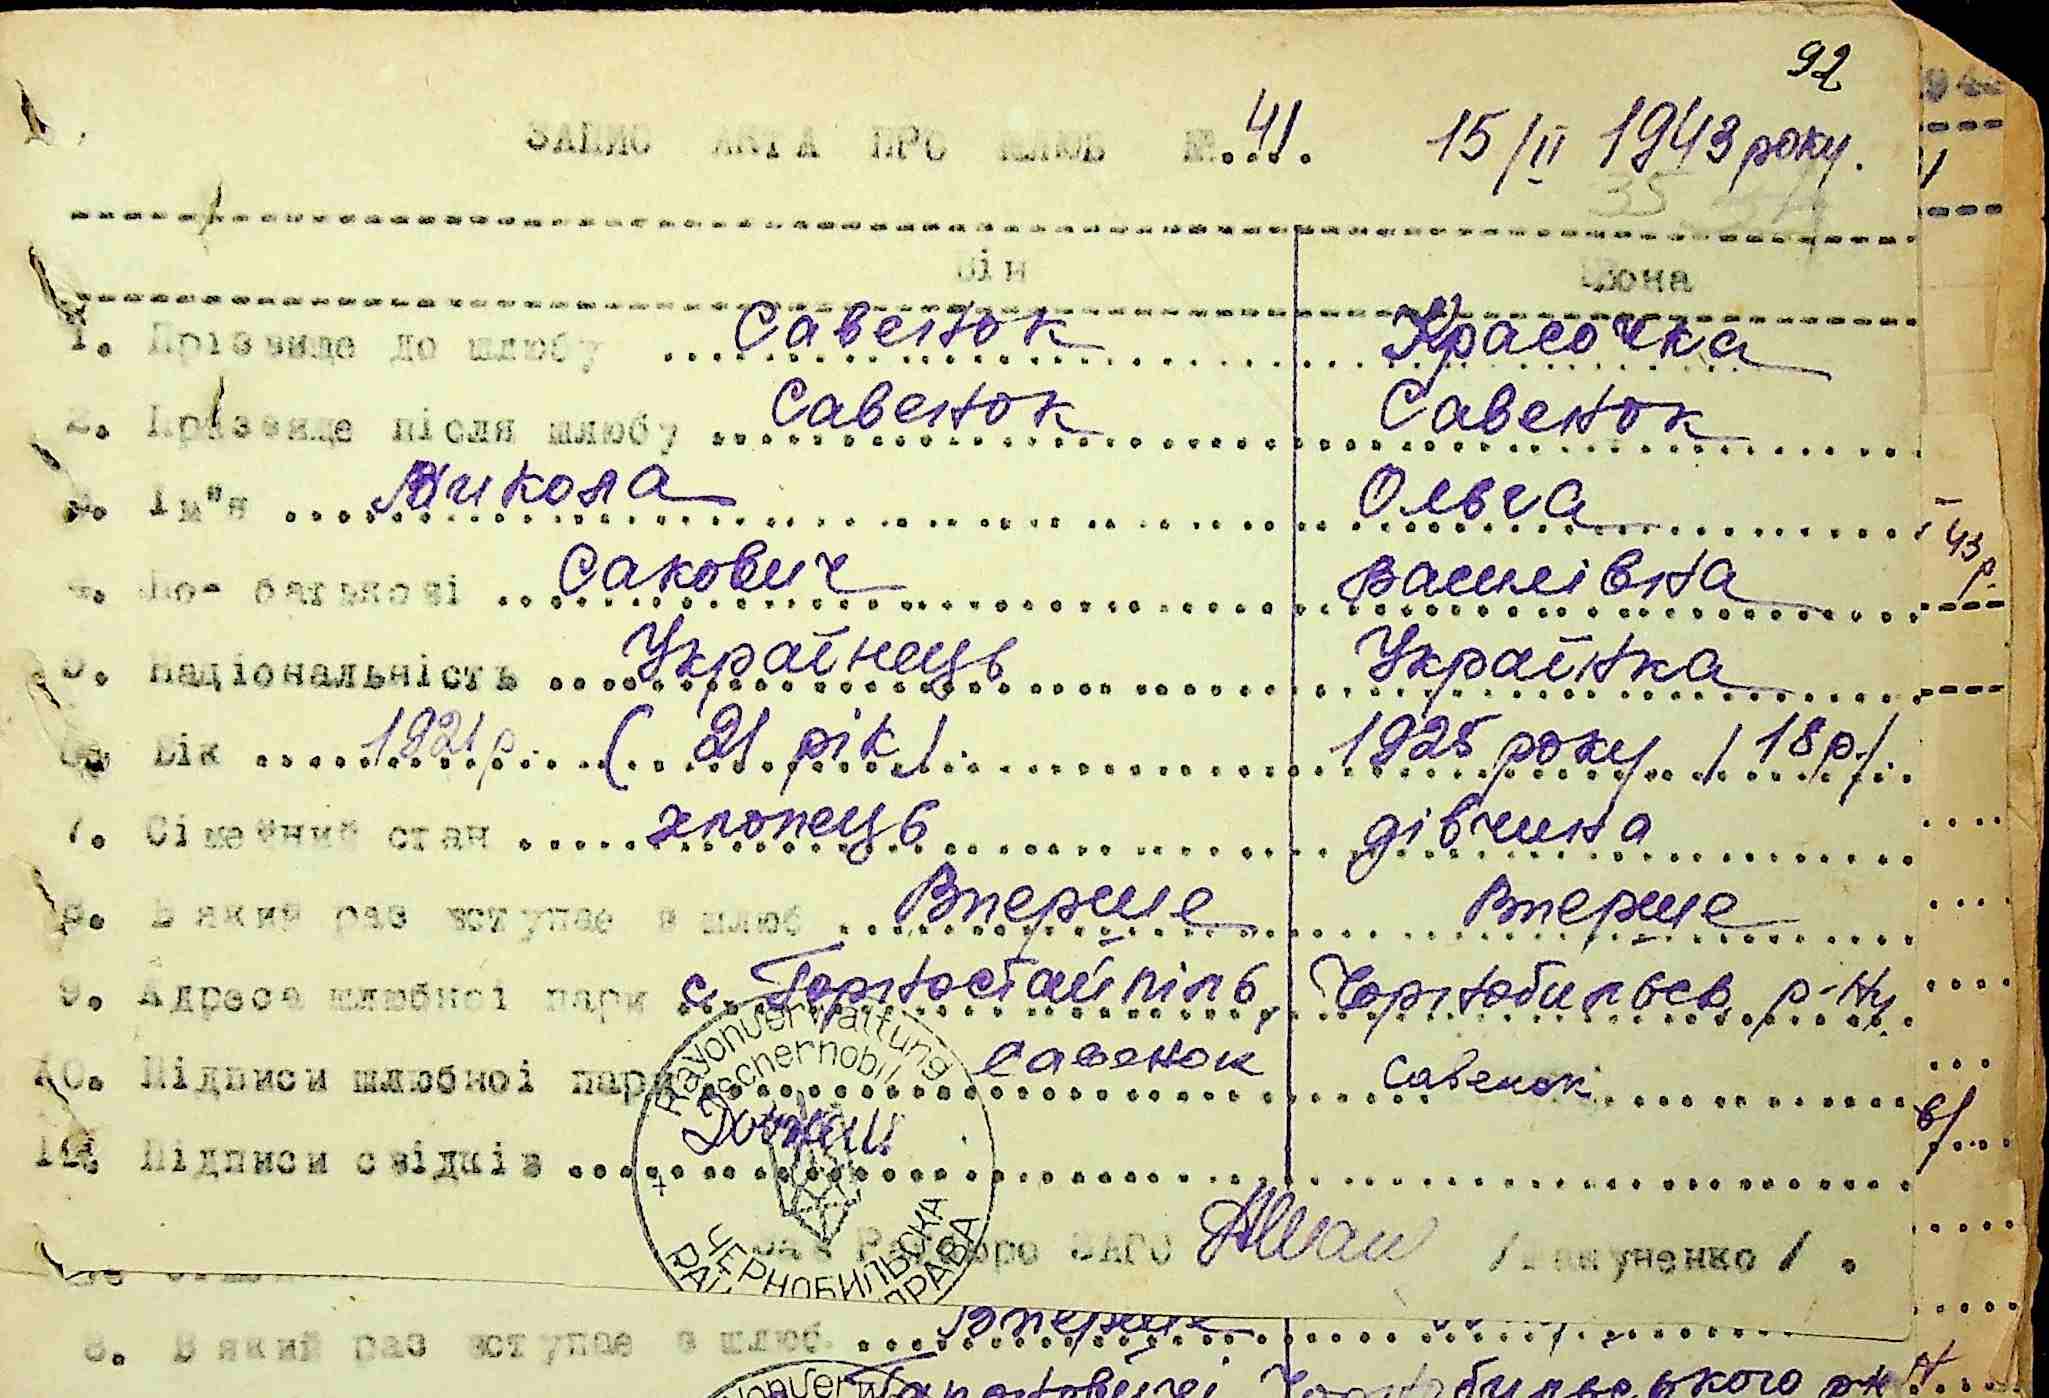 92
ЗАПИС АКТА ПРО ШЛЮБ №...41. 15/II 1943 року.
35
Він Вона
1. Прізвище до шлюбу Савенок Красочка
2. Прізвище після шлюбу Савенок Савенок
3. Ім"я Микола Ольга
4. По- батькові Сакович Василівна
5. Національність Українець Українка
6. Вік 1921 р. (21 рік). 1925 року /18 р./.
7. Сімейний стан хлопець дівчина
8. В який раз вступає в шлюб Вперше Вперше
9. Адреса шлюбної пари с. Горностайпіль, Чорнобильськ р-ну
10. Підписи шлюбної пари Савенок Савенок
11. Підписи свідків
Rayonverwaltung
Tschernobil
ЧЕРНОБИЛЬСКА
Зав Райбюро ЗАГС / /.
8. В який раз вступає в шлюб. Вперше
Чорнобульського
43 р.